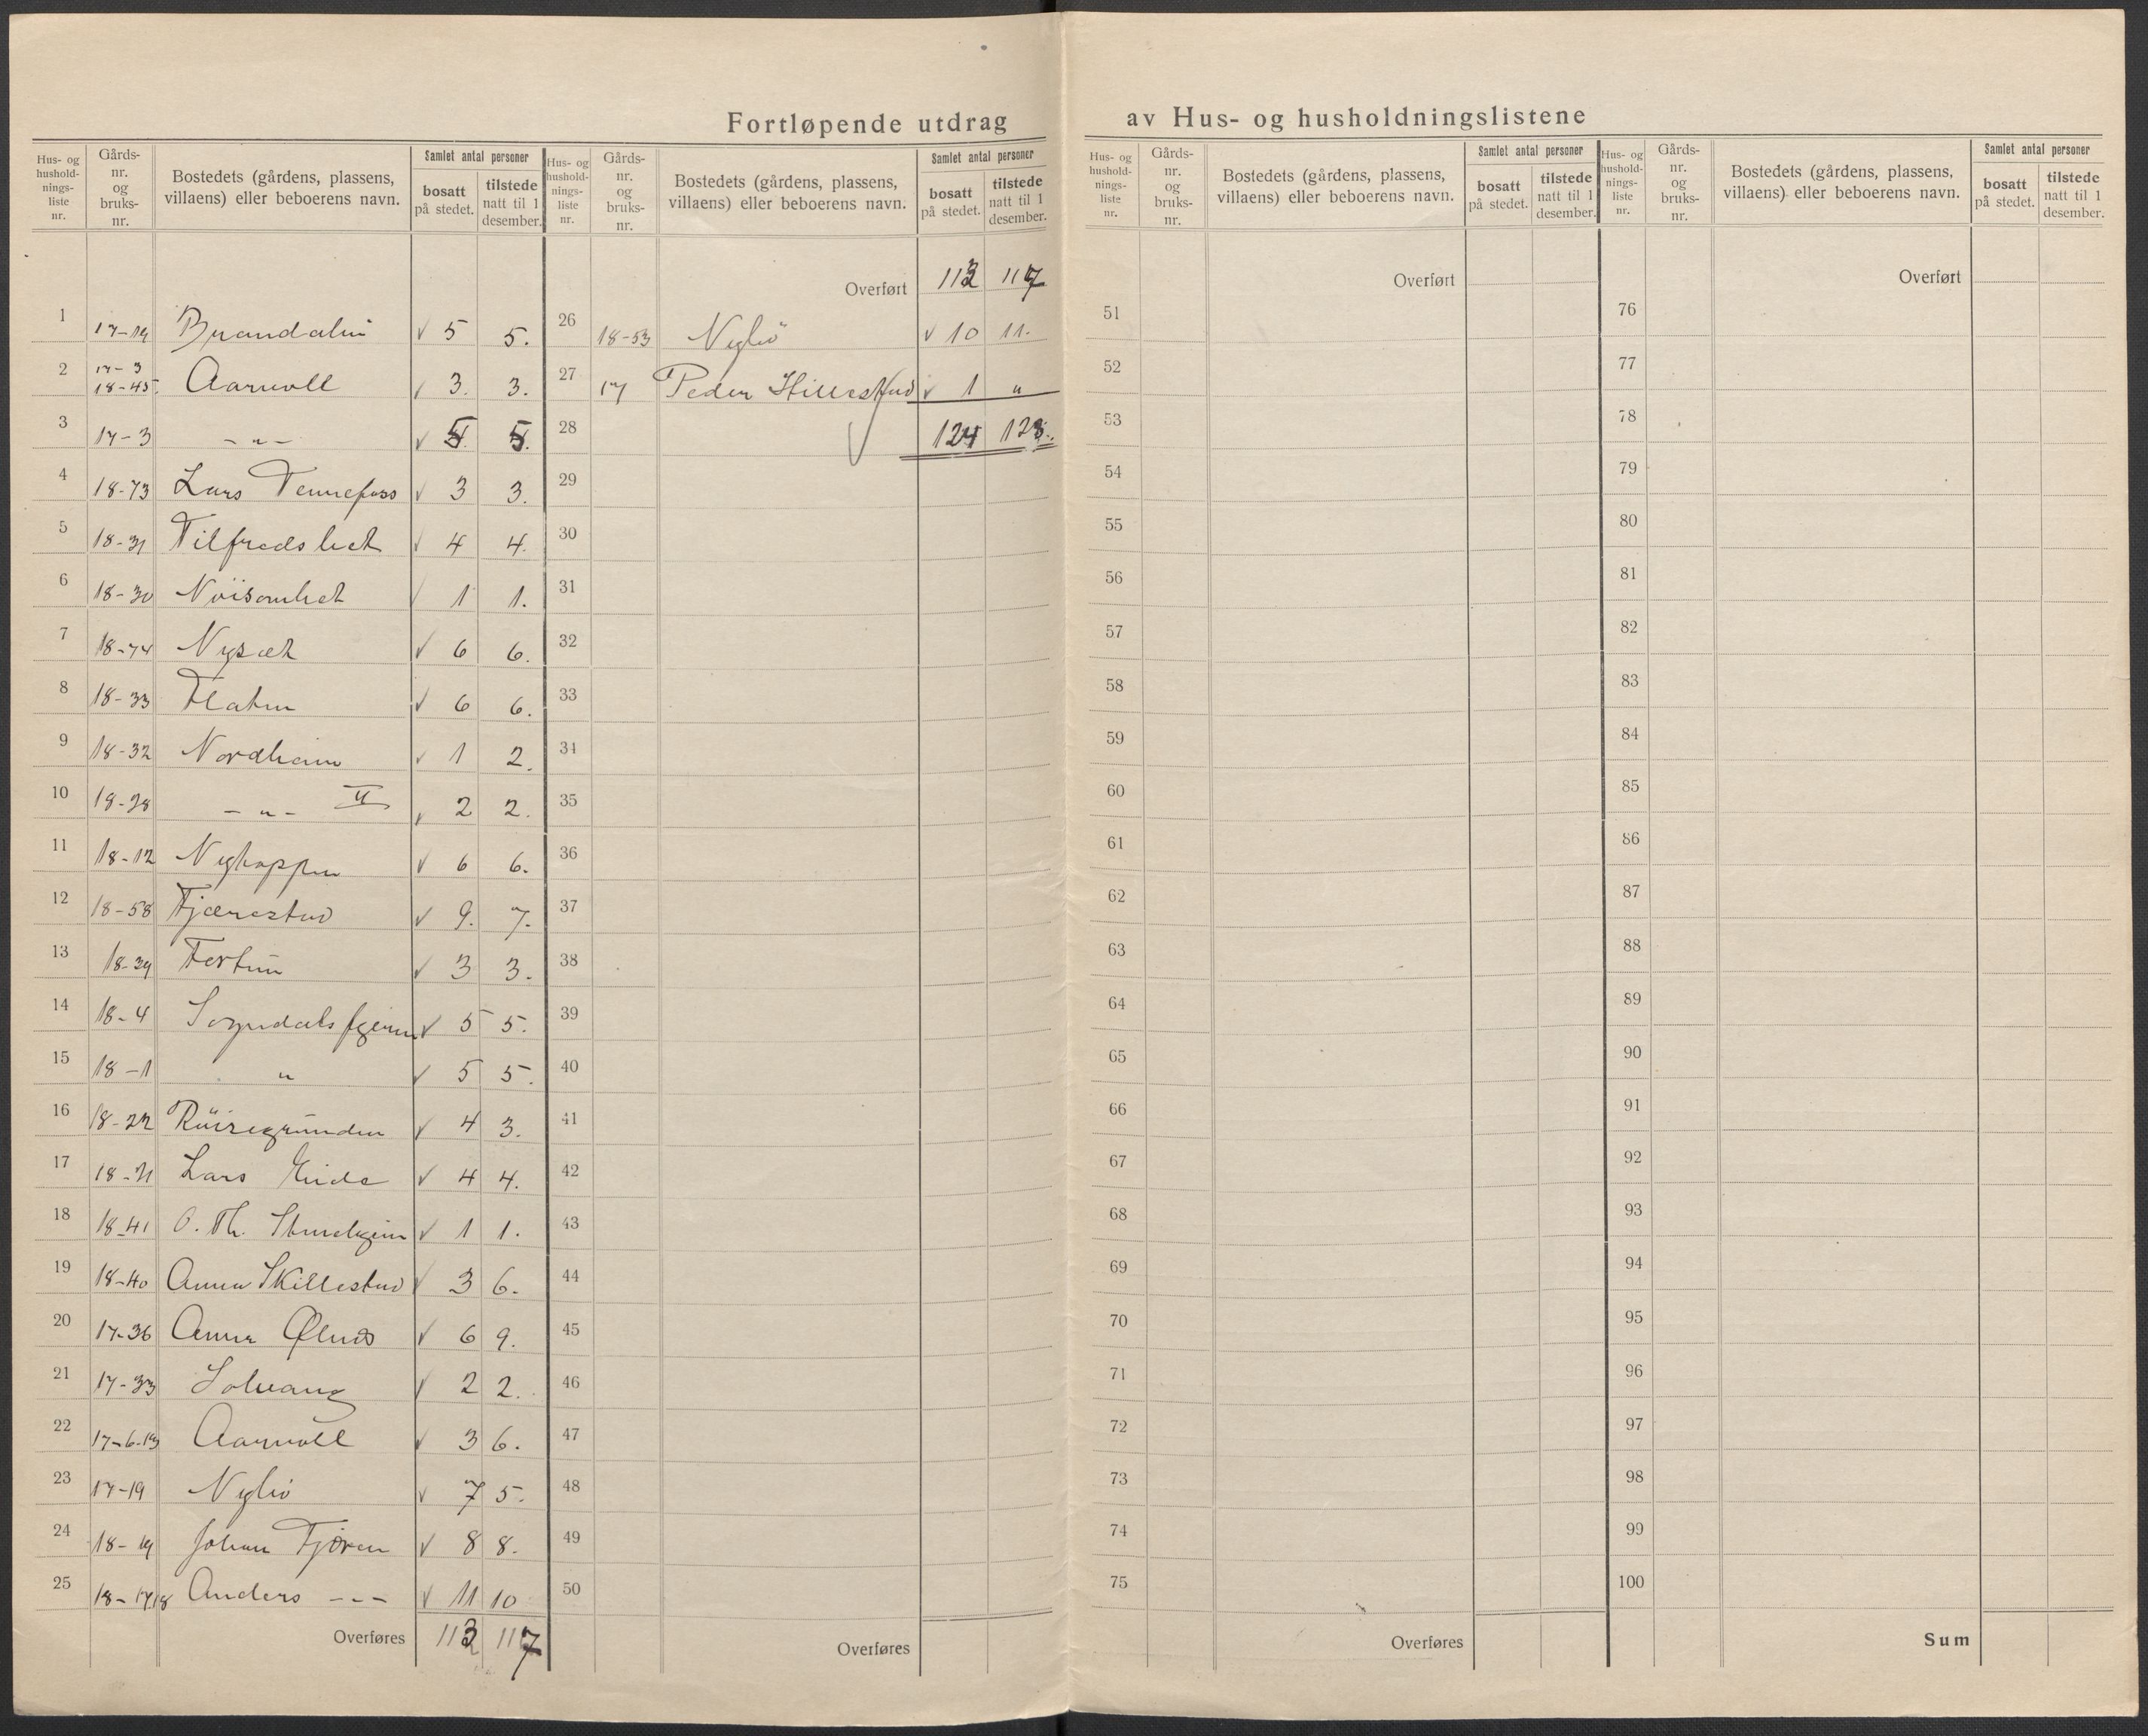 Fortløpende utdrag av Hus- og husholdningslistene
Hus- og hushold- nings- liste nr. | Gårds- nr. og bruks- nr. | Bostedets (gårdens, plassens, villaens) eller beboerens navn. | Samlet antal personer | bosatt på stedet. | tilstede natt til 1 desember.
1 17-19 Brandalin √ 5 5.
2 17-3 18-45. Aarvoll √ 3. 3.
3 17-3 -"- √ 5. 5.
4 18-73 Lars Tennefoss √ 3 3.
5 18-31 Tilfredshet √ 4 4.
6 18-30 Nöisomhet √ 1 1.
7 18-74 Nysæt √ 6 6.
8 18-33 Flaten √ 6 6.
9 18-32 Nordheim √ 1 2.
10 18-28 -"- II √ 2 2.
11 18-12 Nyhappen √ 6 6.
12 18-58 Fjærestad √ 9. 7.
13 18-39 Fortun √ 3 3.
14 18-4 Sogndalsfjæren √ 5 5.
15 18-1 " √ 5 5.
16 18-22 Röisegrunden √ 4 3.
17 18-21 Lars Eide √ 4 4.
18 18-41 O. Th. √ 1 1.
19 18-40 Anna Skillestad √ 3 6.
20 17-36 Anna Ølnes √ 6 9.
21 17-33 Solvang √ 2 2.
22 17-6.13 Aarvoll √ 3 6.
23 17-19 Nyliö √ 7 5.
24 18-19 Johan Fjören √ 8 8.
25 18-17,18 Anders --- √ 11 10
Overføres 113 117
Hus- og hushold- nings- liste nr. | Gårds- nr. og bruks- nr. | Bostedets (gårdens, plassens, villaens) eller beboerens navn. | Samlet antal personer | bosatt på stedet. | tilstede natt til 1 desember.
Overført 113 117
26 18-53 Nyliö √ 10 11.
27 17 Peder Hillestad √ 1 "
28 124 128.
29
30
31
32
33
34
35
36
37
38
39
40
41
42
43
44
45
46
47
48
49
50
Overføres
Hus- og hushold- nings- liste nr. | Gårds- nr. og bruks- nr. | Bostedets (gårdens, plassens, villaens) eller beboerens navn. | Samlet antal personer | bosatt på stedet. | tilstede natt til 1 desember.
Overført
51
52
53
54
55
56
57
58
59
60
61
62
63
64
65
66
67
68
69
70
71
72
73
74
75
Overføres
Hus- og hushold- nings- liste nr. | Gårds- nr. og bruks- nr. | Bostedets (gårdens, plassens, villaens) eller beboerens navn. | Samlet antal personer | bosatt på stedet. | tilstede natt til 1 desember.
Overført
76
77
78
79
80
81
82
83
84
85
86
87
88
89
90
91
92
93
94
95
96
97
98
99
100
Sum